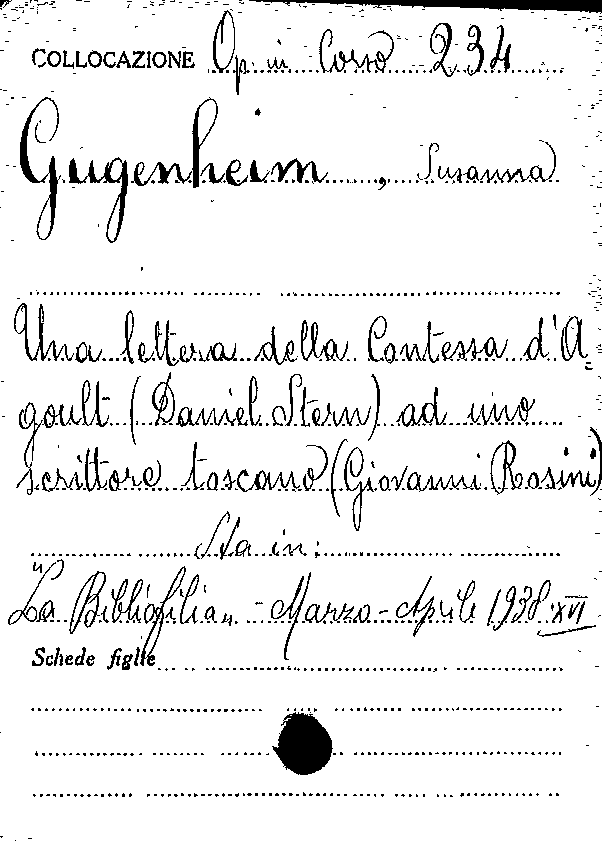 COLLOCAZIONE Op. in Corso 234
Gugenheim, Susanna
Una lettera della Contessa d'A
goult (Daniel Stern) ad uno
scrittore toscano (Giovanni Rosini)
Sta in:
"La Bibliofilia" - Marzo-Aprile 1938.XVI
Schede figlie